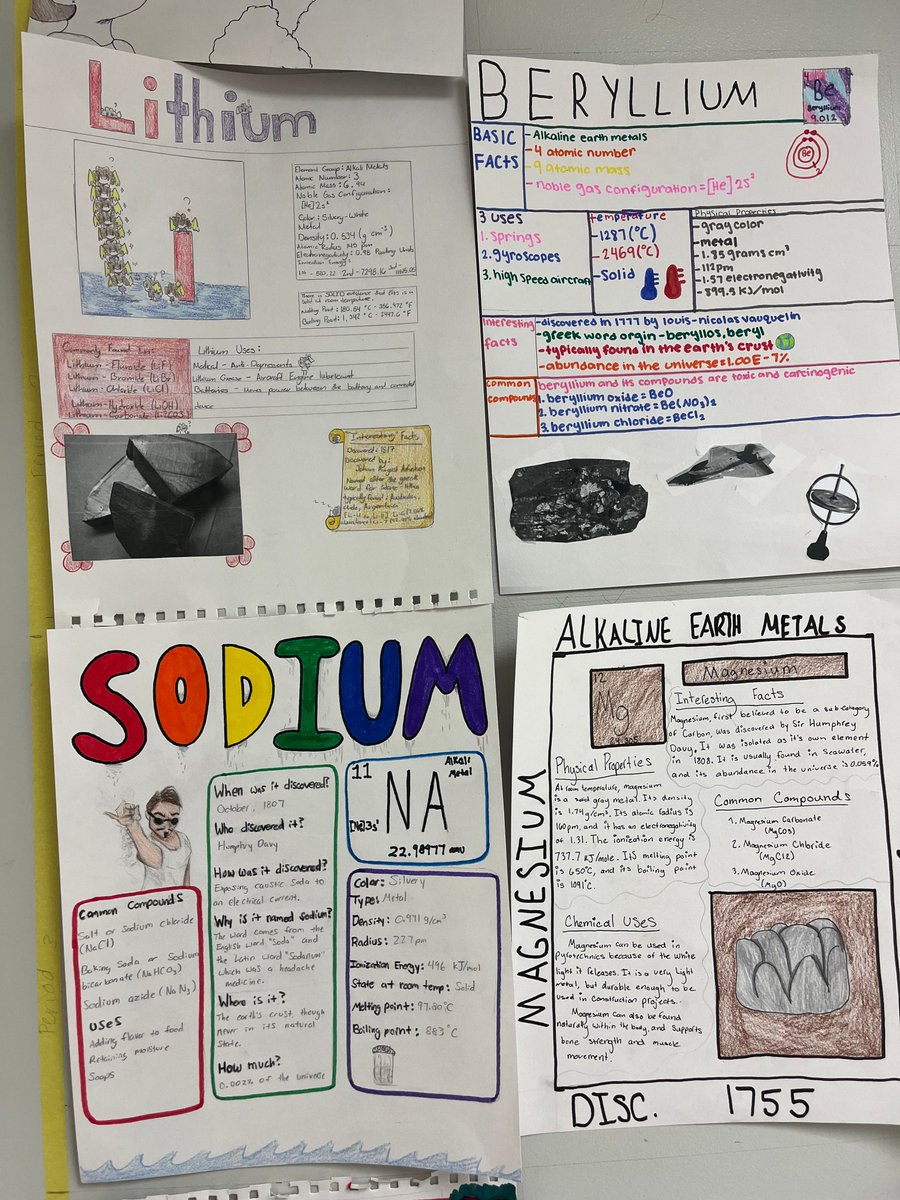 Lithium
Element Group: Alkali Metals
Atomic Number: 3
Atomic Mass: 6.94
Noble Gas Configuration:
[He]2s²
Color: Silvery-White
Metal
Density: 0.534 (g cm⁻³)
Atomic Radius
Electronegativity: 0.98 Pauling Units
Ionization Energy:
There is SOLID evidence that this is a
solid at room temperature.
Melting Point: 180.54 °C - 356.972 °F
Boiling Point: 1,342 °C - 2447.6 °F
Commonly Found In:
Lithium - Fluoride (LiF)
Lithium - Bromide (LiBr)
Lithium - Chloride (LiCl)
Lithium - Hydroxide (LiOH)
Lithium - Carbonate
Lithium Uses:
Medical - Anti-Depressants
Lithium Grease - Aircraft Engine Lubricant
Batteries - Moves power between the battery and connected
device
Interesting Facts
Discovered: 1817
Discovered by:
Johan August
Named after the greek
word for Stone -
typically found: Australia,
Chile, Argentina
BERYLLIUM
4
Be
Beryllium
9.012
Be
BASIC
FACTS
- Alkaline earth metals
- 4 atomic number
- 9 atomic mass
- noble gas configuration = [He] 2s²
3 Uses
1. Springs
2. gyroscopes
3. high speed aircraft
temperature
- 1287 (°C)
- 2469 (°C)
- Solid
Physical Properties
- gray color
- metal
- 1.85 grams cm³
- 112pm
- 1.57 electronegativity
- 899.5 KJ/mol
Interesting
facts
- discovered in 1777 by louis-nicolas vauquelin
- greek word orgin - beryllos, beryl
- typically found in the earth's crust
- abundance in the universe = 1.00E-7%
common
compounds
beryllium and its compounds are toxic and carcinogenic
1. beryllium oxide = BeO
2. beryllium nitrate = Be(NO₃)₂
3. beryllium chloride = BeCl₂
SODIUM
When was it discovered?
October, 1807
Who discovered it?
Humphry Davy
How was it discovered?
Exposing caustic Soda to
an electrical current.
Why is it named sodium?
The word comes from the
English word "Soda" and
the Latin word "Sodanum"
which was a headache
medicine.
Where is it?
The earth's crust, though
never in its natural
State.
How much?
0.002% of the universe
11
Alkali
Metal
NA
[Ne]3s'
22.98977 amu
Color: Silvery
Type: Metal
Density: 0.971 g/cm³
Radius: 227pm
Ionization Energy: 496 KJ/mol
State at room temp: Solid
Melting point: 97.80°C
Boiling point: 883°C
Common Compounds
Salt or Sodium chloride
(NaCl)
Baking Soda or Sodium
bicarbonate (NaHCO₃)
Sodium azide (NaN₃)
uses
Adding flavor to food
Retaining moisture
Soaps
ALKALINE EARTH METALS
MAGNESIUM
12
Mg
Magnesium
Interesting Facts
Magnesium, first believed to be a sub-category
of Carbon, was discovered by Sir Humphrey
Davy. It was isolated as it's own element
in 1808. It is usually found in Seawater,
and its abundance in the universe is
Physical Properties
At room temperature, magnesium
is a solid gray metal. Its density
is 1.74g/cm³. Its atomic radius is
160pm, and it has an electronegativity
of 1.31. The ionization energy is
737.7 KJ/mole. Its melting point
is 650°C, and its boiling point
is 1091°C.
Common Compounds
1. Magnesium Carbonate
(MgCO3)
2. Magnesium Chloride
(MgCl2)
3. Magnesium Oxide
(MgO)
Chemical Uses
Magnesium can be used in
Pyrotechnics because of the white
light it releases. It is a very light
metal, but durable enough to be
used in construction projects.
Magnesium can also be found
naturally within the body, and supports
bone strength and muscle
movement.
DISC. 1755